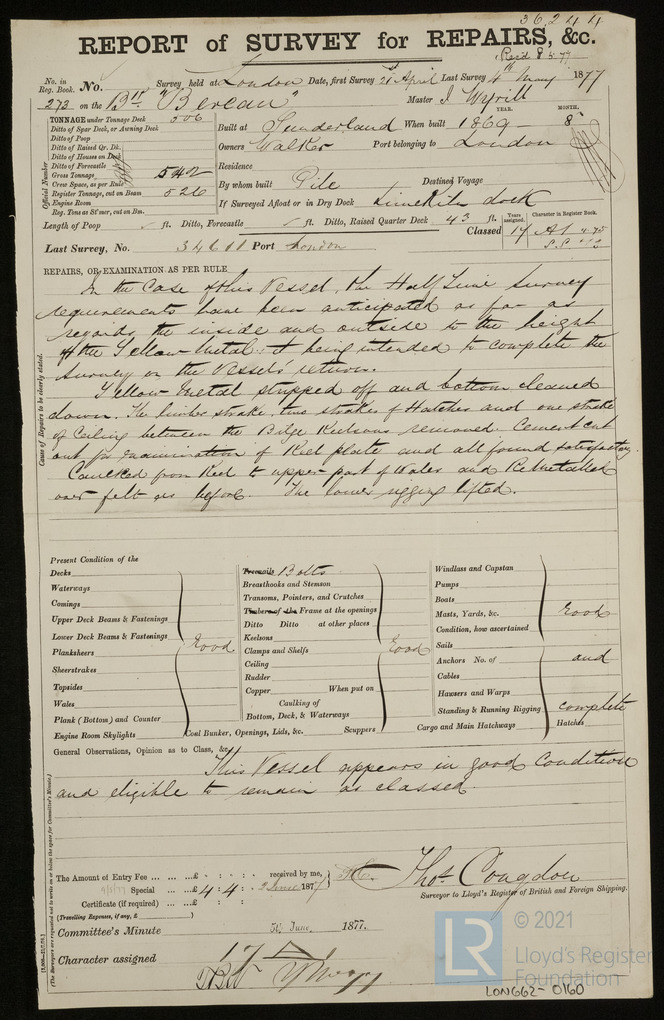 36244
REPORT of SURVEY for REPAIRS, &c.
Recd 8.5.77
No. in Reg. Book. No. Survey held at London Date, first Survey 21st April Last Survey 4th May 1877
273 on the Bk "Berean" Master J. Wyrill
TONNAGE under Tonnage Deck 506
Ditto of Spar Deck, or Awning Deck
Ditto of Poop
Ditto of Raised Qr. Dk.
Ditto of Houses on Deck
Ditto of Forecastle
Gross Tonnage 542
Crew Space, as per Rule
Register Tonnage, cut on Beam 526
Engine Room
Reg. Tons as St'mer, cut on Bm.
Official Number
YEAR. MONTH.
Built at Sunderland When built 1869 8
Owners Walker Port belonging to London
Residence
By whom built Pile Destined Voyage
If Surveyed Afloat or in Dry Dock Limekiln dock
Length of Poop ft. Ditto, Forecastle ft. Ditto, Raised Quarter Deck 43 ft.
Years assigned. Character in Register Book.
Classed 17 A1 4.75
Last Survey, No. 34611 Port London
REPAIRS, OR EXAMINATION AS PER RULE
In the Case of this Vessel, the Half Time Survey
requirements have been anticipated as far as
regards the inside and outside to the height
of the Yellow Metal; it being intended to complete the
survey on the Vessel's return.
Yellow Metal stripped off and bottom cleaned
down. The limber strake, two strakes of Hatches and one strake
of Ceiling between the Bilge Keelsons removed. Cement cut
out for examination of Keel plate and all found satisfactory.
Caulked from Keel to upper part of Wales and Remetalled
over felt as before. The lower rigging lifted.
Cause of Repairs to be clearly stated.
Present Condition of the
Decks
Waterways
Comings
Upper Deck Beams & Fastenings
Lower Deck Beams & Fastenings
Planksheers Good
Sheerstrakes
Topsides
Wales
Plank (Bottom) and Counter
Engine Room Skylights
Treenails Bolts
Breasthooks and Stemson
Transoms, Pointers, and Crutches
Timbers of the Frame at the openings
Ditto Ditto at other places
Keelsons
Clamps and Shelfs Good
Ceiling
Rudder
Copper When put on
Caulking of
Bottom, Deck, & Waterways
Coal Bunker, Openings, Lids, &c. Scuppers
Windlass and Capstan
Pumps
Boats
Masts, Yards, &c. Good
Condition, how ascertained
Sails
Anchors No. of and
Cables
Hawsers and Warps
Standing & Running Rigging complete
Cargo and Main Hatchways Hatches
General Observations, Opinion as to Class, &c.
This Vessel appears in good condition
and eligible to remain as classed.
The Amount of Entry Fee £ : : received by me,
Special £ 4 : 4 : 2 June 1877
Certificate (if required) £ : :
(Travelling Expenses, if any, £ )
Thos. Congdon
Surveyor to Lloyd's Register of British and Foreign Shipping.
Committee's Minute 5th June, 1877.
Character assigned 17 A 1
(The Surveyors are requested not to write on or below the space for Committee's Minute.)
© 2021
LR
Lloyd's Register
Foundation
LON662-0160